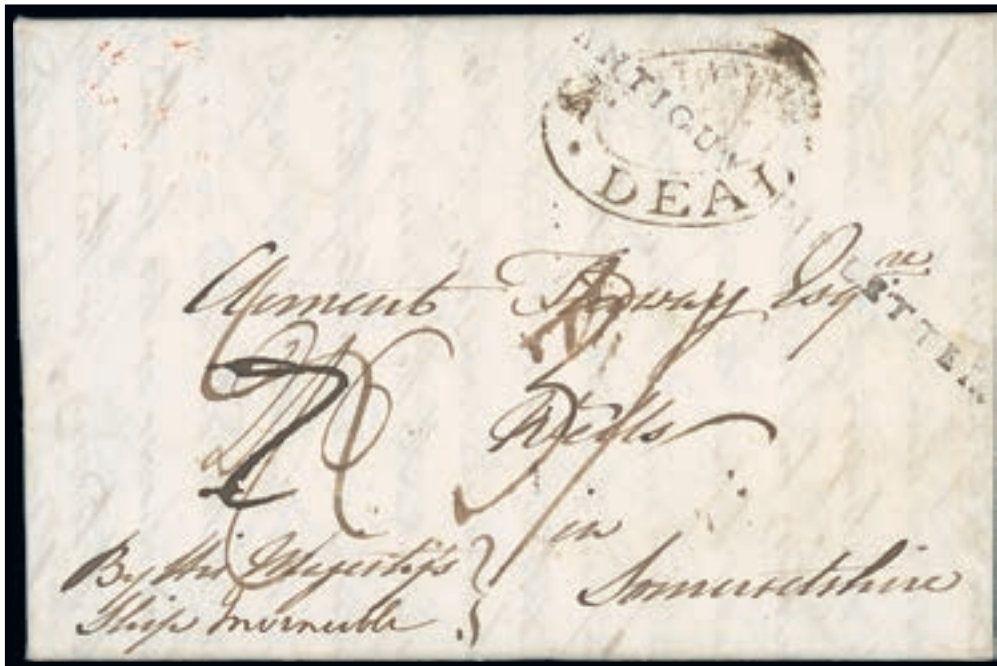 ANTIGUA
DEAL
Clement Esq.re
ETTER
Wells
in
Somersetshire
By His Majestys
Ship Invincible